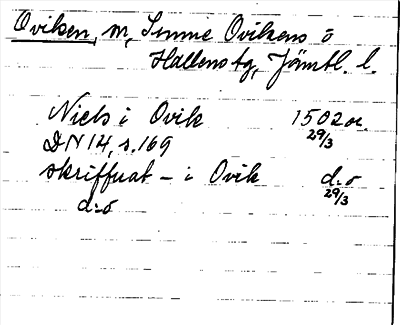 Oviken, m, Sunne Ovikens o
Hallens tg, Jämtl. l.
Niels i Ovik 1502 or.
DN 14, s. 169 29/3
skriffuat - i Ovik d:o
d:o 29/3